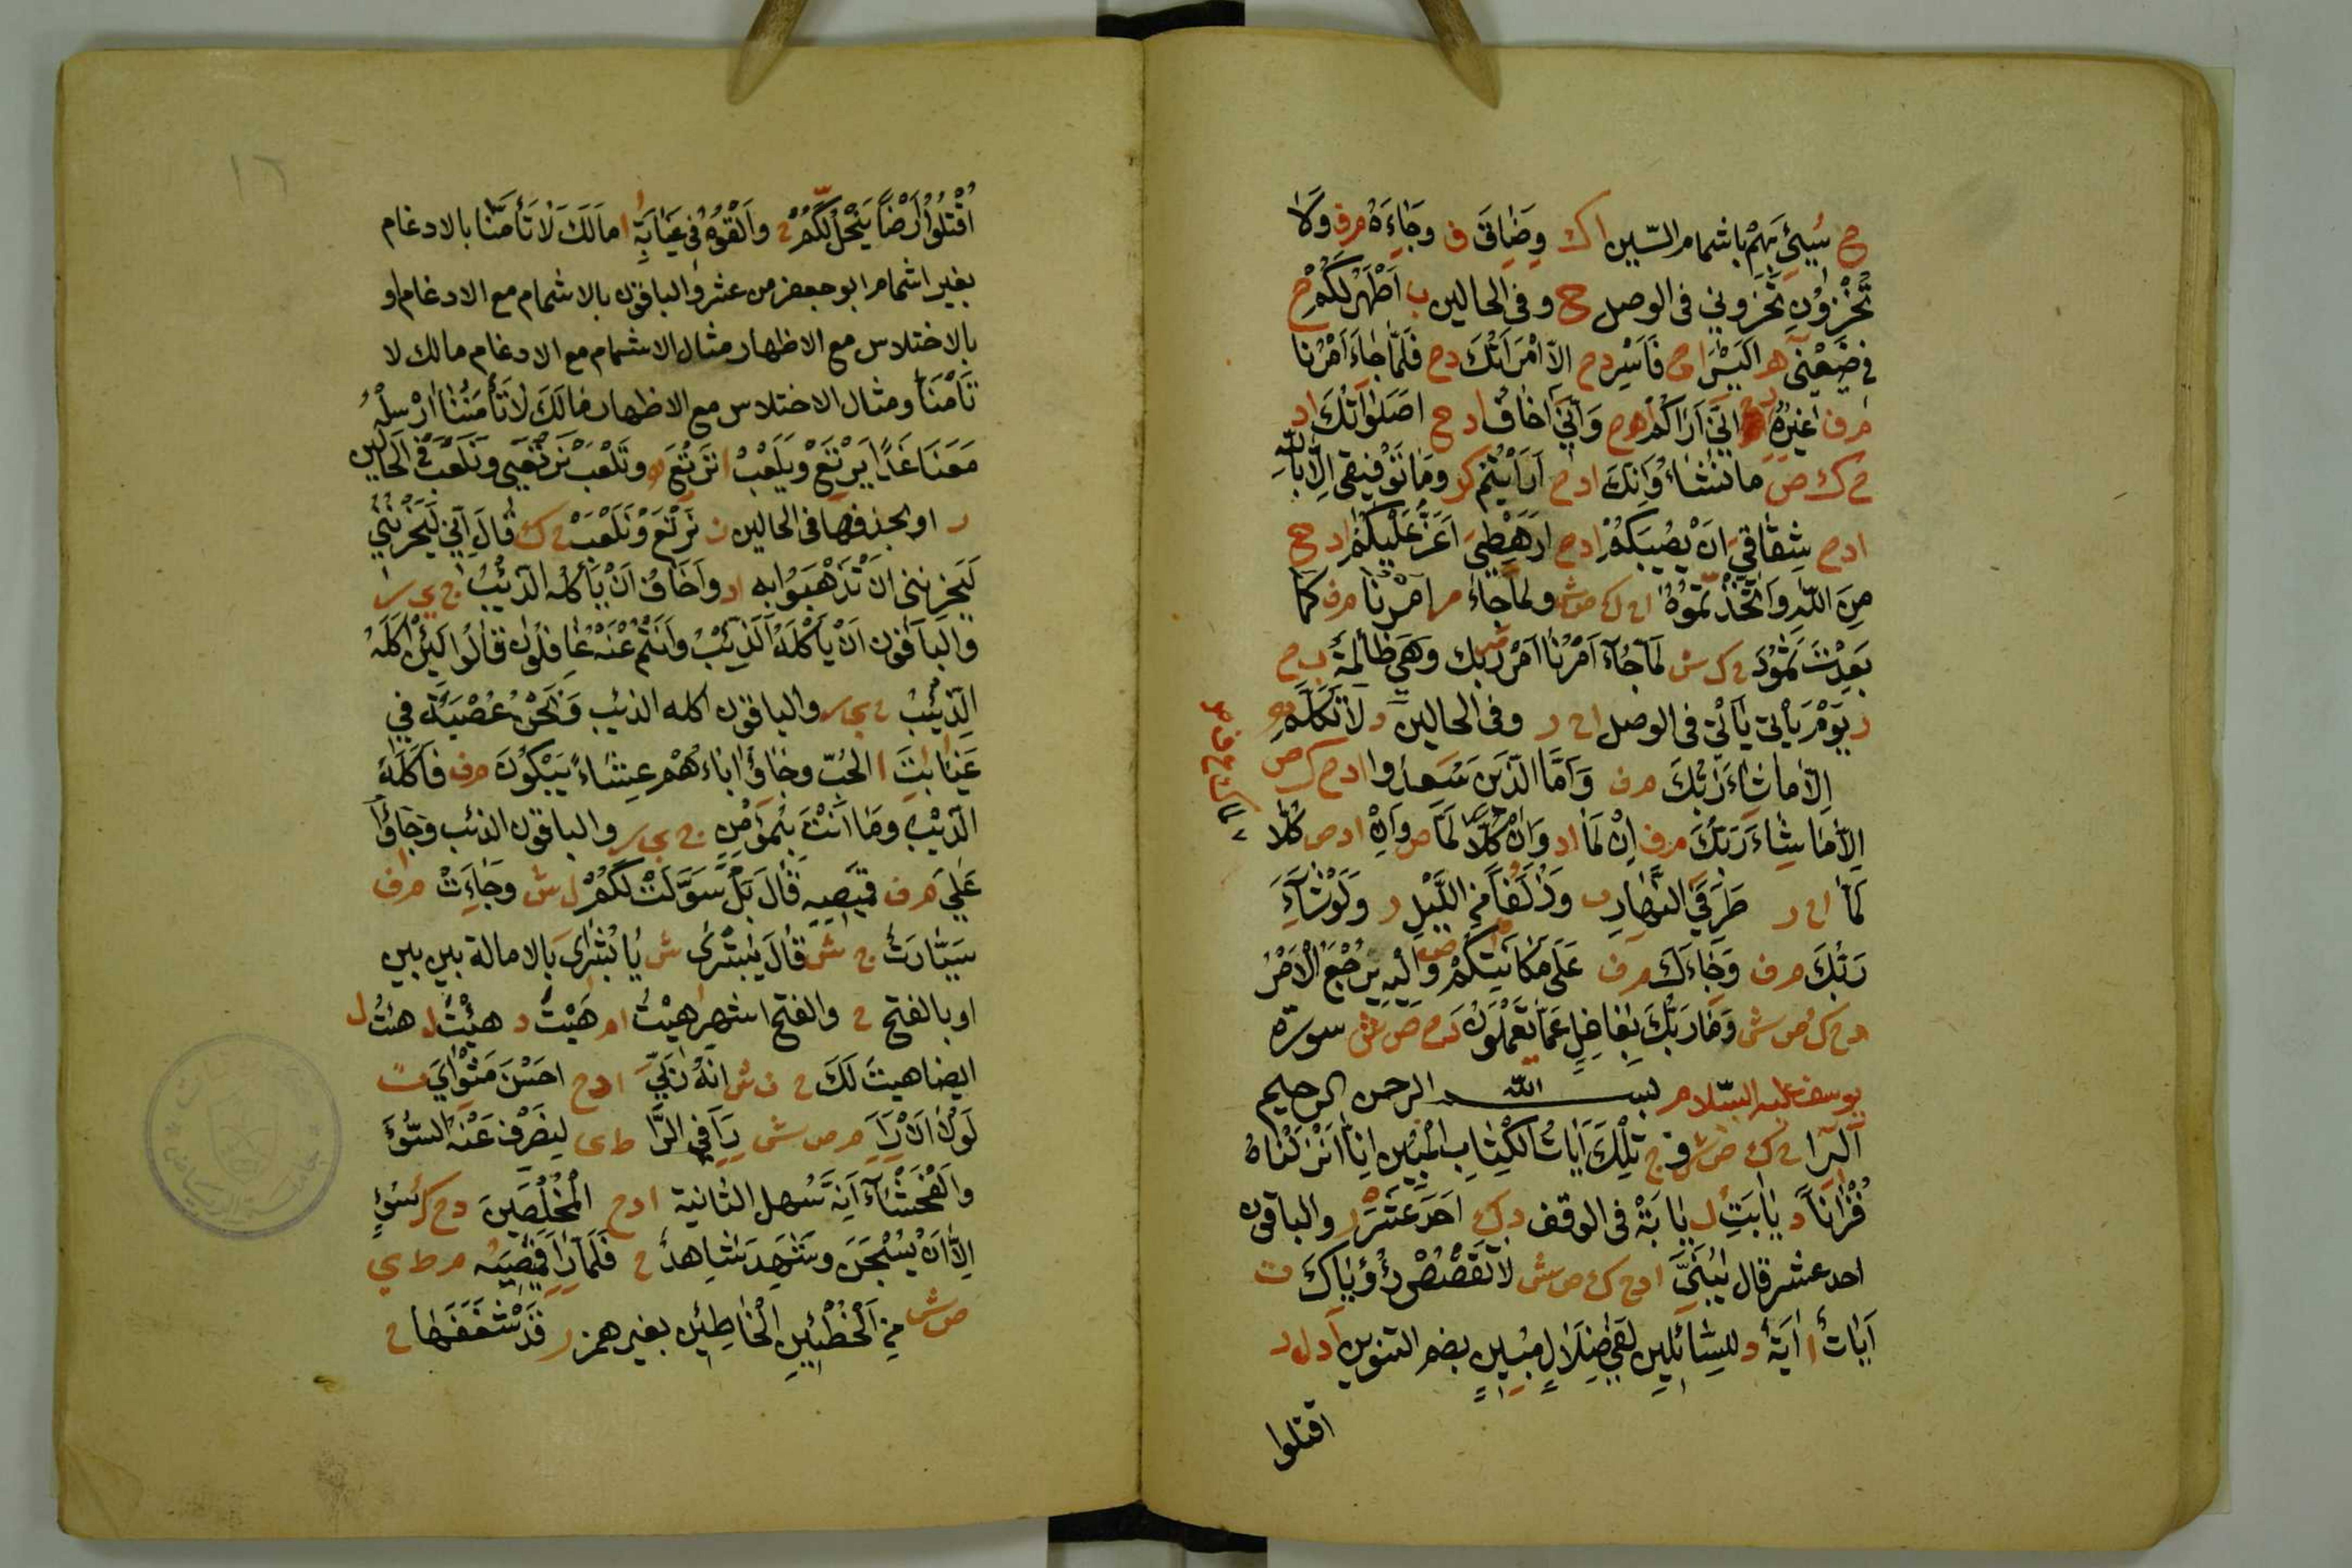 ح سُيِئَ بِهُمْ باشمام السّين اك وضَاقَ ف وجَاءَهُ مرف وَلَا
تُخْزُونِ تُخْزُونِي فى الوصل ح وفى الحالين ب اَطْهَرُ لَكُمْ ح
فِي ضَيْفِي هو اَلَيْسَ اح فَاَسْرِ دح الاّ امْرَاَتُكَ دح فَلَمَّا جَاءَ اَمْرُنَا
مرف اغَيْرُهُ اِنِّي اَرَاكُمْ هرح وَاِنِّي اَخَافُ ادح اصَلَوَاتُكَ اد
ح ك ص مانَشَاءُ وَاِنَّكَ ادح اَرَاَيْتُمْ كر ومَا تَوْفِيقِي اِلَّا بِاللّٰهِ
ادح شِقَاقِي اَنْ يُصِيبَكُمْ ادح اَرَهْطِي اَعَزُّ عَلَيْكُمْ ادح
مِنَ اللّٰهِ وَاتَّخَذْتُمُوهُ اح ك ص ش ولما جَاءَ مر اَمْرُنَا مرف كَمَا
بَعِدَتْ ثَمُودُ ح ك ش لَمَّا جَاءَ اَمْرُنَا اَمْرُ رَبِّك وَهِيَ ظَالِمَةٌ ب ح
ر يَوْمَ يَاْتِ يَاْتِي فى الوصل اح ر وفى الحالين د لَا تَكَلَّمُ
اِلَّا مَا شَاءَ رَبُّكَ مرف وَاَمَّا الَّذِينَ سَعِدُوا ادح ك ص
اِلَّا مَا شَاءَ رَبُّكَ مرف اِنْ لَمَا اد وَاِنْ كُلًّا لَمَّا ص وَاِنْ ادص كُلًّا
لَمَا اح ر طَرَفَيِ النَّهَارِ وَزُلَفًا مِنَ اللَّيْلِ ر وَلَوْ شَاءَ
رَبُّكَ مرف وَجَاءَكَ مرف عَلَى مَكَانَتِكُمْ وَاِلَيْهِ يَرْجِعُ الْاَمْرُ
دح ك ص ش وَمَا رَبُّكَ بِغَافِلٍ عَمَّا تَعْمَلُونَ دح ص ش سورة
يوسف عليه السّلام بسم اللّٰه الرحمن الرحيم
الٓرٰ اح ك ص ش ف ج تِلْكَ اٰيَاتُ الْكِتَابِ الْمُبِينِ اِنَّا اَنْزَلْنَاهُ
قُرْاٰنًا د يَا اَبَتِ ل يَا اَبَهْ فى الوقف دك اَحَدَ عَشَرَ ر والباقون
احد عشر قال يٰبُنَيَّ ادح ك ص ش لَا تَقْصُصْ رُؤْيَاكَ ت
اٰيَاتٌ ا اٰيَةٌ د لِلسَّائِلِينَ لَفِي ضَلَالٍ مُبِينٍ بضم التنوين ا د ل ر
اقتلوا
١٦
اقْتُلُوا اَرْضًا يَخْلُ لَكُمْ ح وَاَلْقُوهُ فِي غَيَابَةِ ا مَا لَكَ لَا تَأْمَنَّا بالادغام
بغير اشمام ابو جعفر من عشر والباقون بالاشمام مع الادغام او
بالاختلاس مع الاظهار مثال الاشمام مع الادغام مالك لا
تَأْمَنَّا ومثال الاختلاس مع الاظهار مَا لَكَ لَا تَأْمَنُنَا اَرْسِلْهُ
مَعَنَا غَدًا يَرْتَعْ وَيَلْعَبْ ا نَرْتَعِ وَنَلْعَبْ نَرْتَعِي وَنَلْعَبْ فى الحالين
ر او بحذفها فى الحالين ن نَرْتَعْ وَنَلْعَبْ ح ك قَالَ اِنِّي لَيَحْزُنُنِي
لَيَحْزُنُنِي اَنْ تَذْهَبُوا بِهِ اد واَخَافُ اَنْ يَأْكُلَهُ الذِّئْبُ ج ى ر
والباقون اَنْ يَأْكُلَهُ الذِّئْبُ وَاَنْتُمْ عَنْهُ غَافِلُونَ قَالُوا لَئِنْ اَكَلَهُ
الذِّئْبُ ج ى ر والباقون اكله الذئب وَنَحْنُ عُصْبَةٌ فِي
غَيَابَتِ ا الْجُبِّ وَجَاؤُا اَبَاءَهُمْ عِشَاءً يَبْكُونَ مرف فَاَكَلَهُ
الذِّيْبُ وَمَا اَنْتَ بِمُؤْمِنٍ ج ى ر والباقون الذئب وَجَاؤُا
عَلَى مرف قَمِيصِهِ قَالَ بَلْ سَوَّلَتْ لَكُمْ ل ش وَجَاءَتْ مرف
سَيَّارَةٌ ح ش قَالَ يٰبُشْرَى ش يَا بُشْرَايَ بالامالة بين بين
او بالفتح ح والفتح اشهر هَيْتُ ام هَيْتُ د هِئْتَ ل هئتُ ل
ايضا هيتَ لَكَ ح ن ش اِنَّهُ رَبِّي ادح اَحْسَنَ مَثْوَايَ ت
لَوْلَا اَنْ رَاَ مر ص ش رَاَ فى الرّا ط ى لِنَصْرِفَ عَنْهُ السُّوءَ
وَالْفَحْشَاءَ اِنَّهُ تسهل الثانية ادح الْمُخْلِصِينَ دح ك سُوءٍ
اِلَّا اَنْ يُسْجَنَ وَشَهِدَ شَاهِدٌ ح فَلَمَّا رَاَ قَمِيصَهُ مر ط ي
ص ش مِنَ الْخَطِئِينَ الْخَاطِئِينَ بغير همز ر قَدْ شَغَفَهَا ح